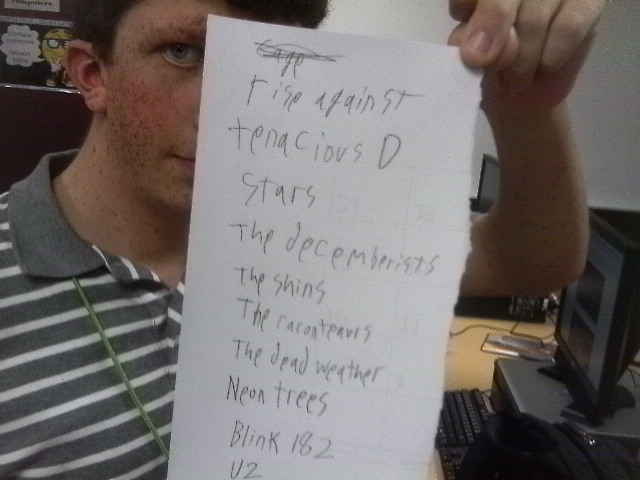 computers
Cage
rise against
tenacious D
stars
The decemberists
The shins
The raconteurs
The dead weather
Neon trees
Blink 182
U2